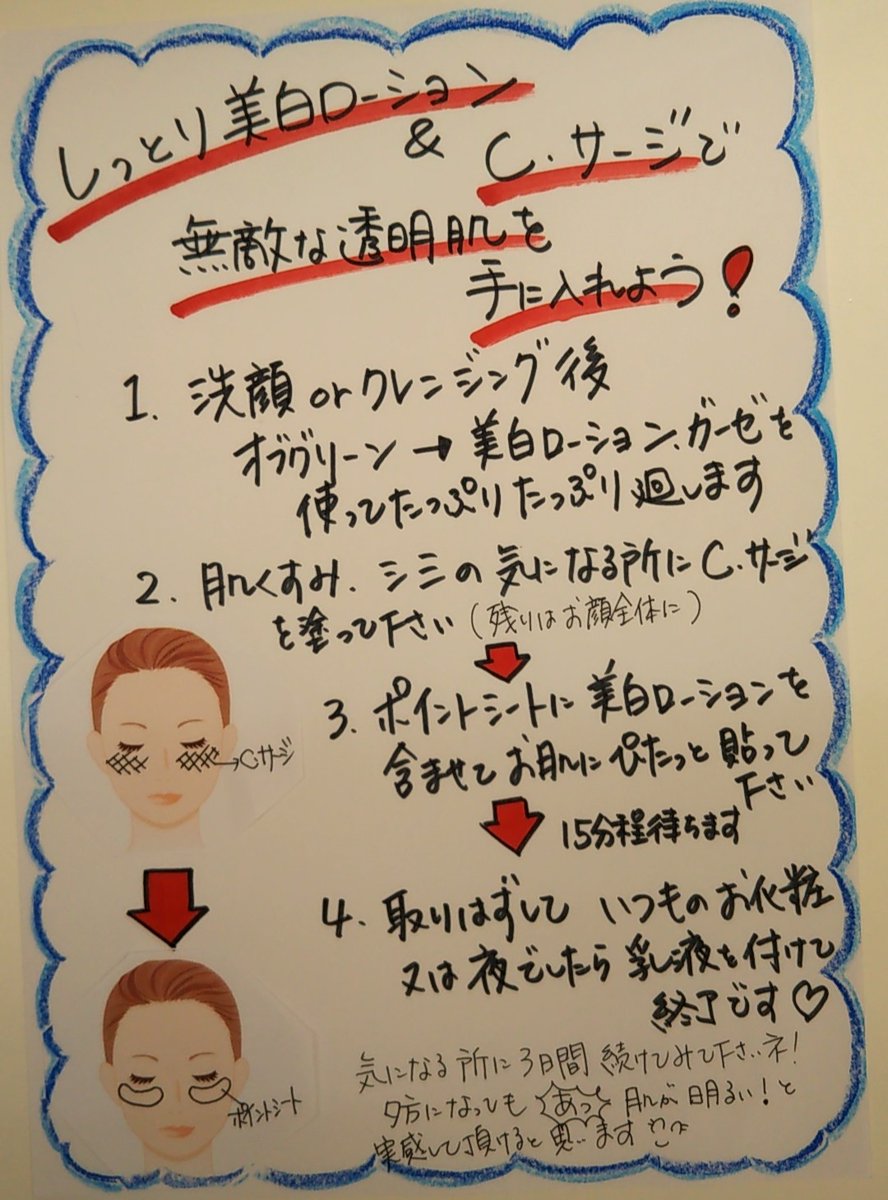 しっとり美白ローション
&
C.サージで
無敵な透明肌を
手に入れよう!
1. 洗顔orクレンジング後
オブグリーン→美白ローション.ガーゼを
使ってたっぷりたっぷり廻します
2. 肌くすみ.シミの気になる所にC.サージ
を塗って下さい(残りはお顔全体に)
3. ポイントシートに美白ローションを
含ませてお肌にぴたっと貼って
下さい
→C.サージ
15分程待ちます
4. 取りはずして いつものお化粧
又は夜でしたら乳液を付けて
終了です♡
気になる所に3日間続けてみて下さいネ!
夕方になっても あっ 肌が明るい!と
実感して頂けると思います
ポイントシート